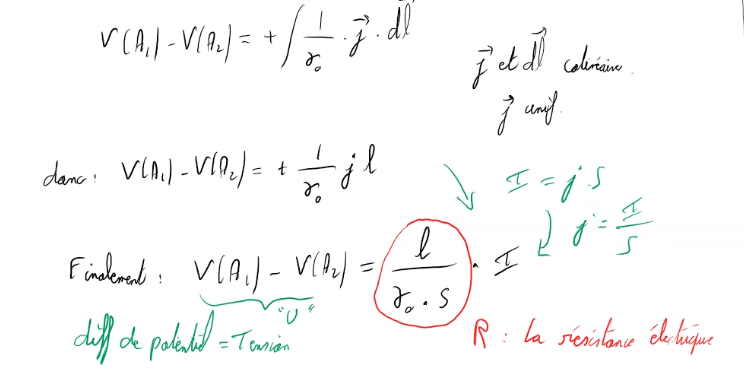 V(A₁) - V(A₂) = + ∫ 1/γ₀ · j⃗ · dl⃗
j⃗ et dl⃗ colinéaire.
j⃗ unif.
donc : V(A₁) - V(A₂) = + 1/γ₀ j l
I = j·S
j = I/S
Finalement : V(A₁) - V(A₂) = l/(γ₀ · S) · I
"U"
diff de potentiel = Tension
R : la résistance électrique